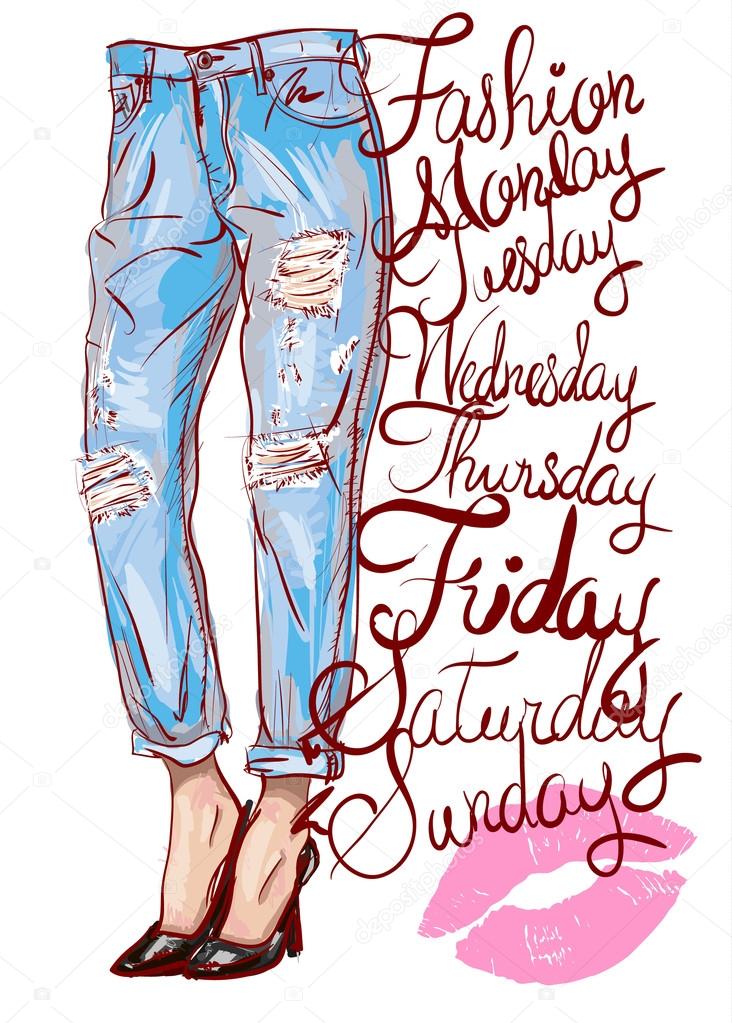 Fashion
Monday
Tuesday
Wednesday
Thursday
Friday
Saturday
Sunday
depositphotos